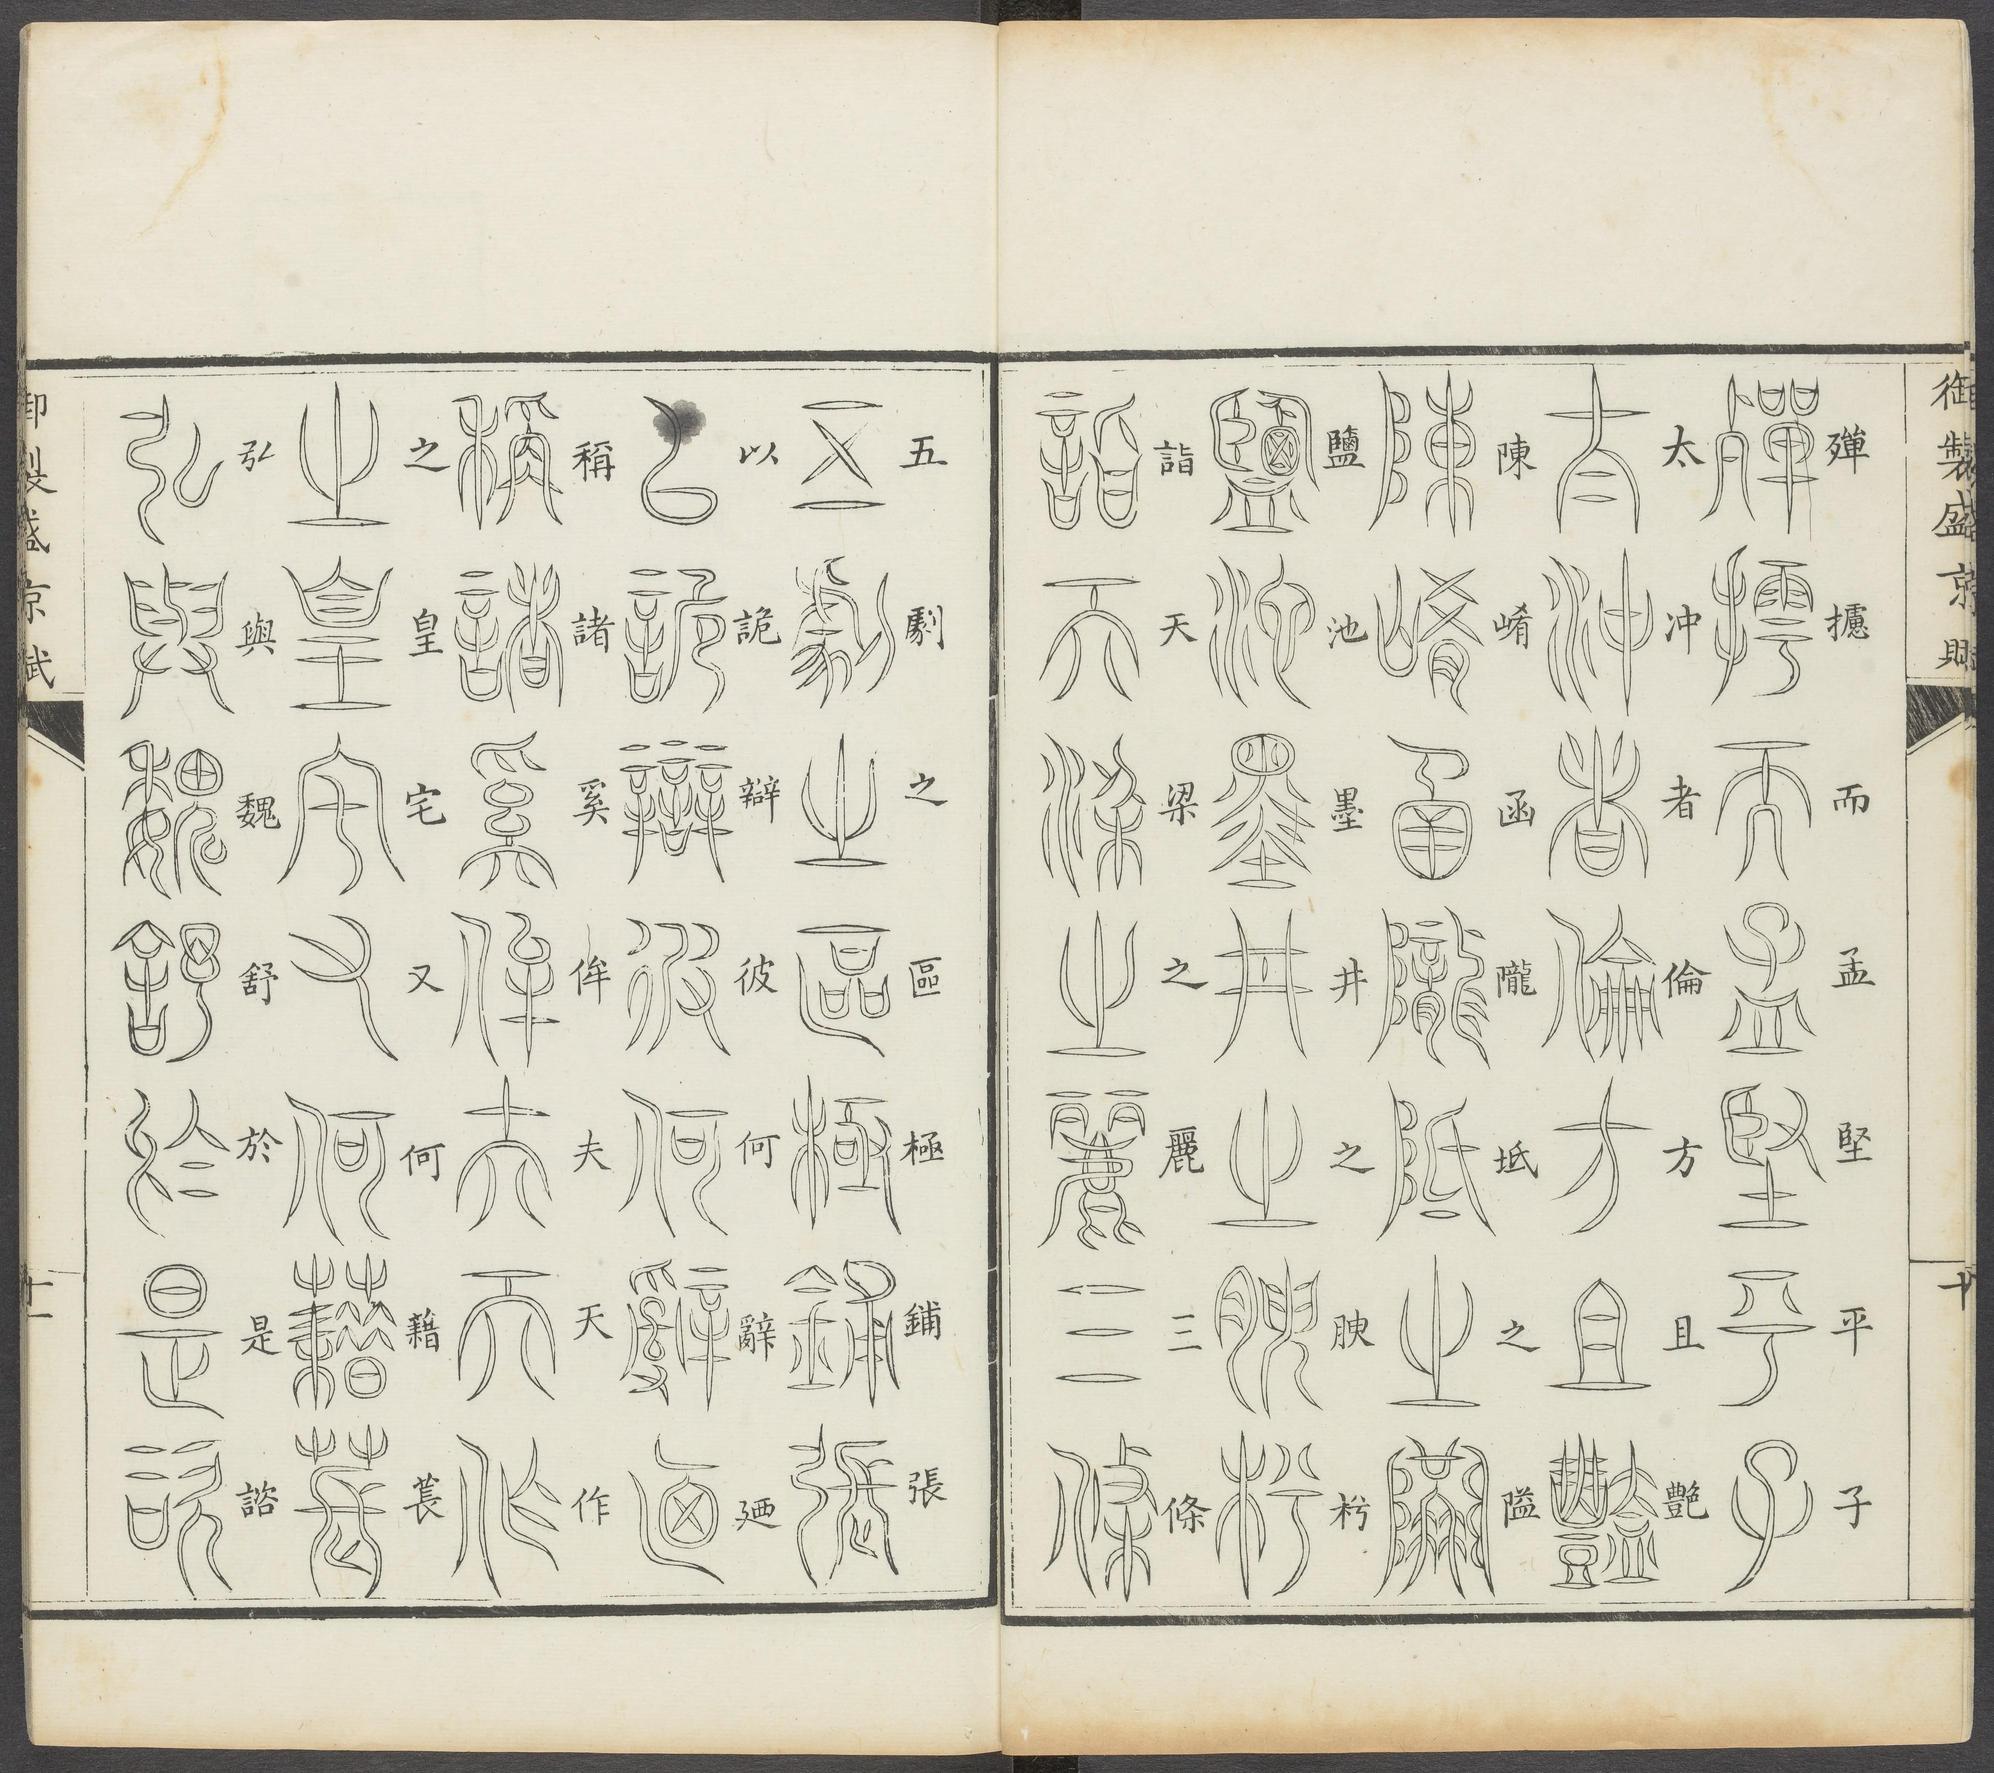 御製盛京賦
十
殫攄而孟堅平子
太冲者倫方且艷
陳崤函隴坻之隘
鹽池墨井之腴衿
詣天梁之麗三條
五劇之區極鋪張
以詭辯彼何辭廼
稱諸奚侔夫天作
之皇宅又何藉萇
弘與魏舒於是諮
御製盛京賦
十一